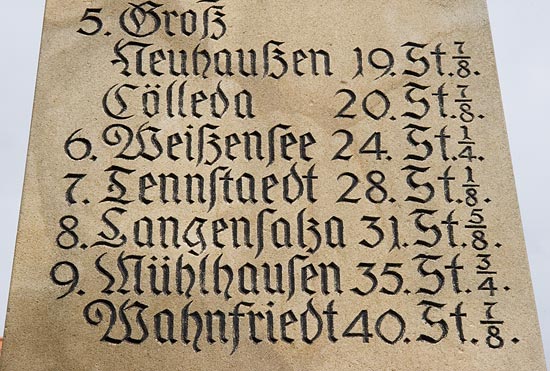 5. Groß
Neuhaußen 19. St. 7/8.
Cölleda 20. St. 7/8.
6. Weißensee 24. St. 1/4.
7. Tennſtaedt 28. St. 1/8.
8. Langenſalza 31. St. 5/8.
9. Mühlhauſen 35. St. 3/4.
Wahnfriedt 40. St. 7/8.